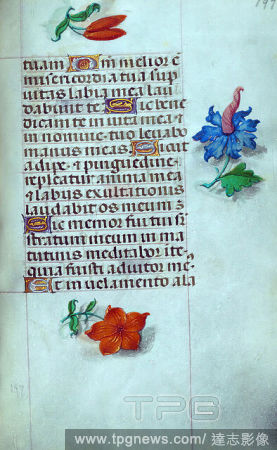 197
tuam Qm melior ē
misericordia tua sup
vitas labia mea lau
dabunt te Sic bene
dicam te in vita mea &
in nomine tuo levabo
manus meas Sicut
adipe & pinguedine
repleatur anima mea
& labiis exultationis
laudabit os meum
Sic memor fui tui sr
stratum meum in ma
tutinis meditabor i te
quia fuisti adiutor me
Et in velamento ala
197
TPG
www.tpgnews.com/ 達志影像